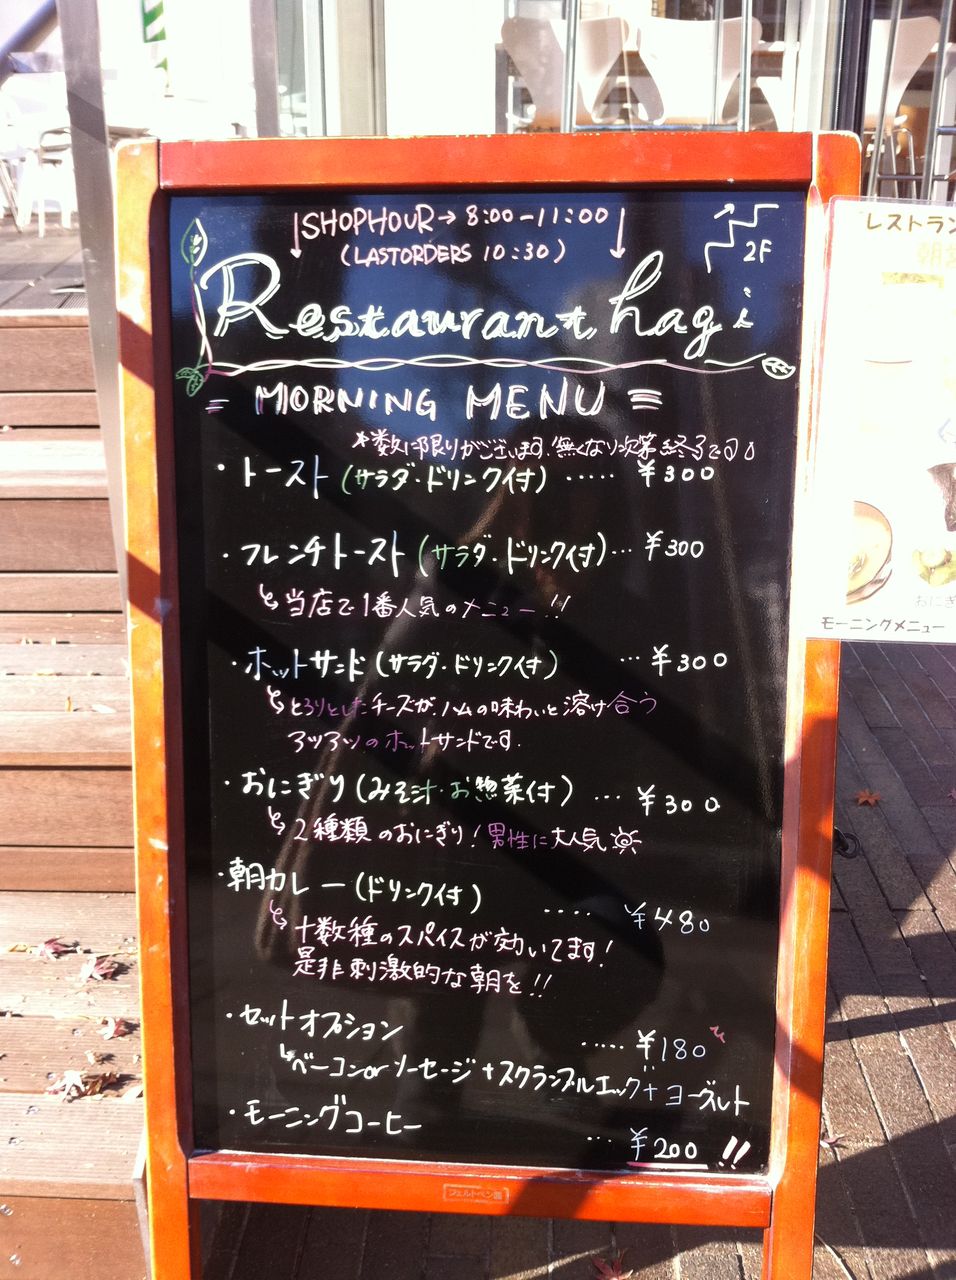 SHOPHOUR→ 8:00-11:00
(LASTORDERS 10:30)
2F
Restaurant hagi
MORNING MENU
*数に限りがございます。無くなり次第終了です。
・トースト(サラダ・ドリンク付)‥‥‥ ¥300
・フレンチトースト(サラダ・ドリンク付)… ¥300
当店で1番人気のメニュー!!
・ホットサンド(サラダ・ドリンク付) … ¥300
とろりとしたチーズが、ハムの味わいと溶け合う
アツアツのホットサンドです。
・おにぎり(みそ汁・お惣菜付) … ¥300
2種類のおにぎり!男性に大人気
・朝カレー(ドリンク付) ‥‥ ¥480
十数種のスパイスが効いてます!
是非刺激的な朝を!!
・セットオプション ‥‥‥ ¥180
ベーコンorソーセージ+スクランブルエッグ+ヨーグルト
・モーニングコーヒー … ¥200 !!
レストラン
おにぎ
モーニングメニュー